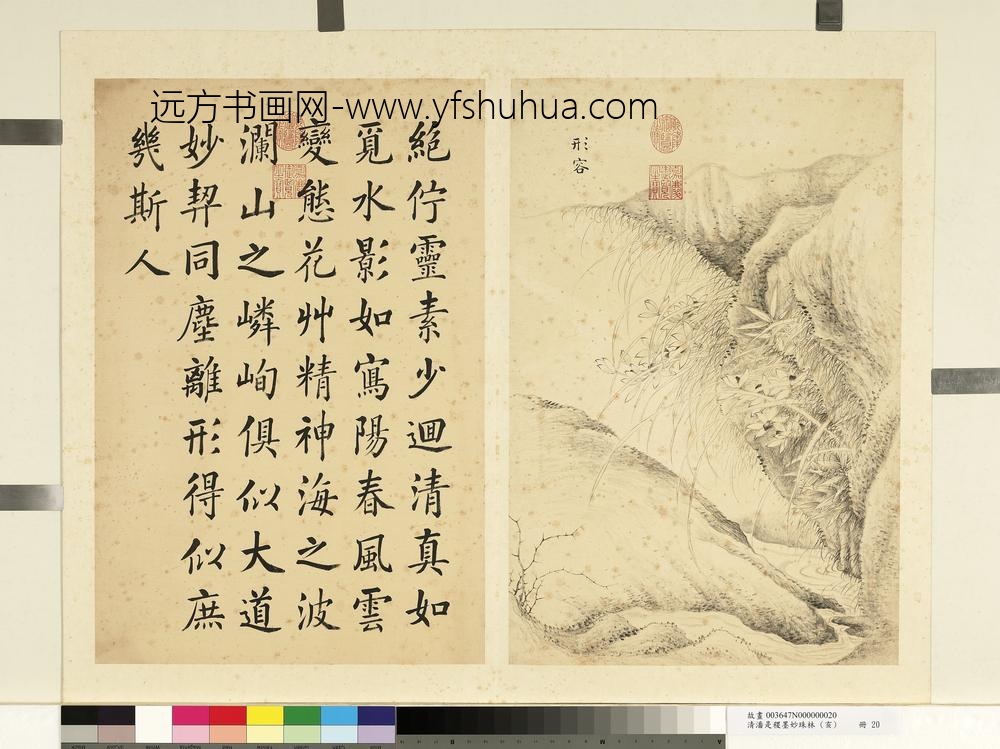 远方书画网-www.yfshuhua.com
絕佇靈素少迴清真如
覓水影如寫陽春風雲
變態花艸精神海之波
瀾山之嶙峋俱似大道
妙契同塵離形得似庶
幾斯人
形容
故畫 003647N000000020
清潘是稷墨妙珠林（亥） 冊 20